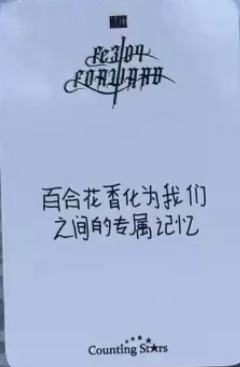 REJOY
FORWARD
百合花香化为我们
之间的专属记忆
Counting Stars